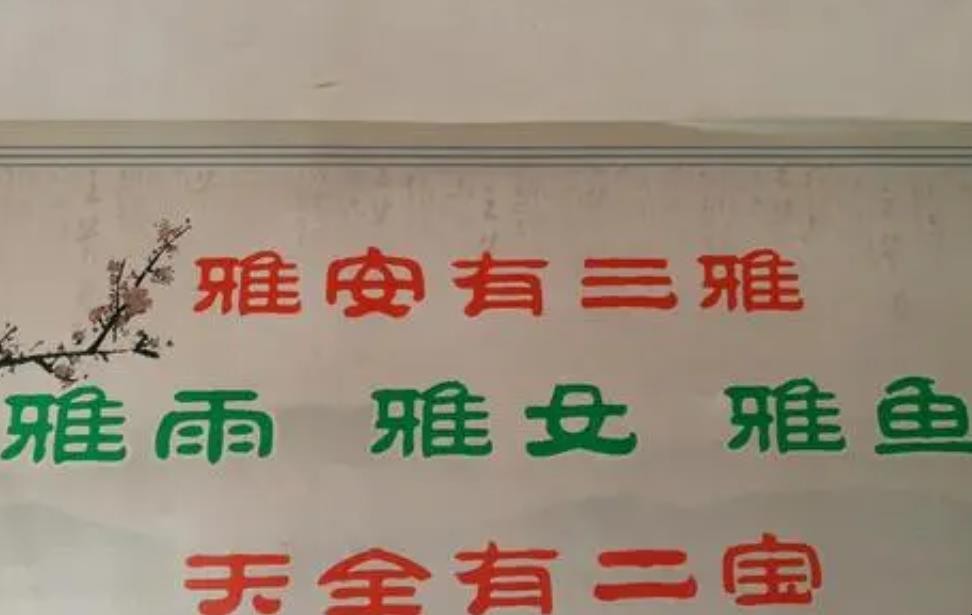 雅安有三雅
雅雨 雅女 雅鱼
天全有二宝